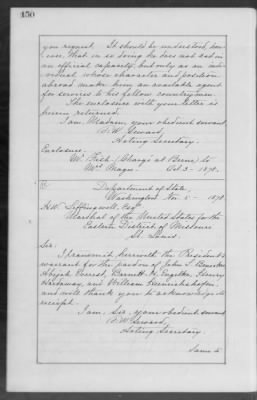 450
you request. It should be understood, how-
ever, that in so doing he does not act in
an official capacity, but only as an indi-
vidual whose character and position
abroad make him an available agent
for services to his fellow countrymen.
The enclosure with your letter is
herein returned.
I am, Madam, your obedient servant
F. W. Seward,
Acting Secretary.
Enclosure:
Mr. Fish (Chargé at Berne) to
Mrs. Oct. 3 - 1878.
Department of State
Washington Nov. 5 - 1878.
H. W. Leffingwell Esqr.
Marshal of the United States for the
Eastern District of Missouri
St. Louis.
Sir:
I transmit herewith the President's
warrant for the pardon of John T.
Abijah Everest, Barnett H. Engelke, Henry
Hardaway, and William
and will thank you to acknowledge its
receipt.
I am, Sir, your obedient servant
F. W. Seward,
Acting Secretary.
Same to